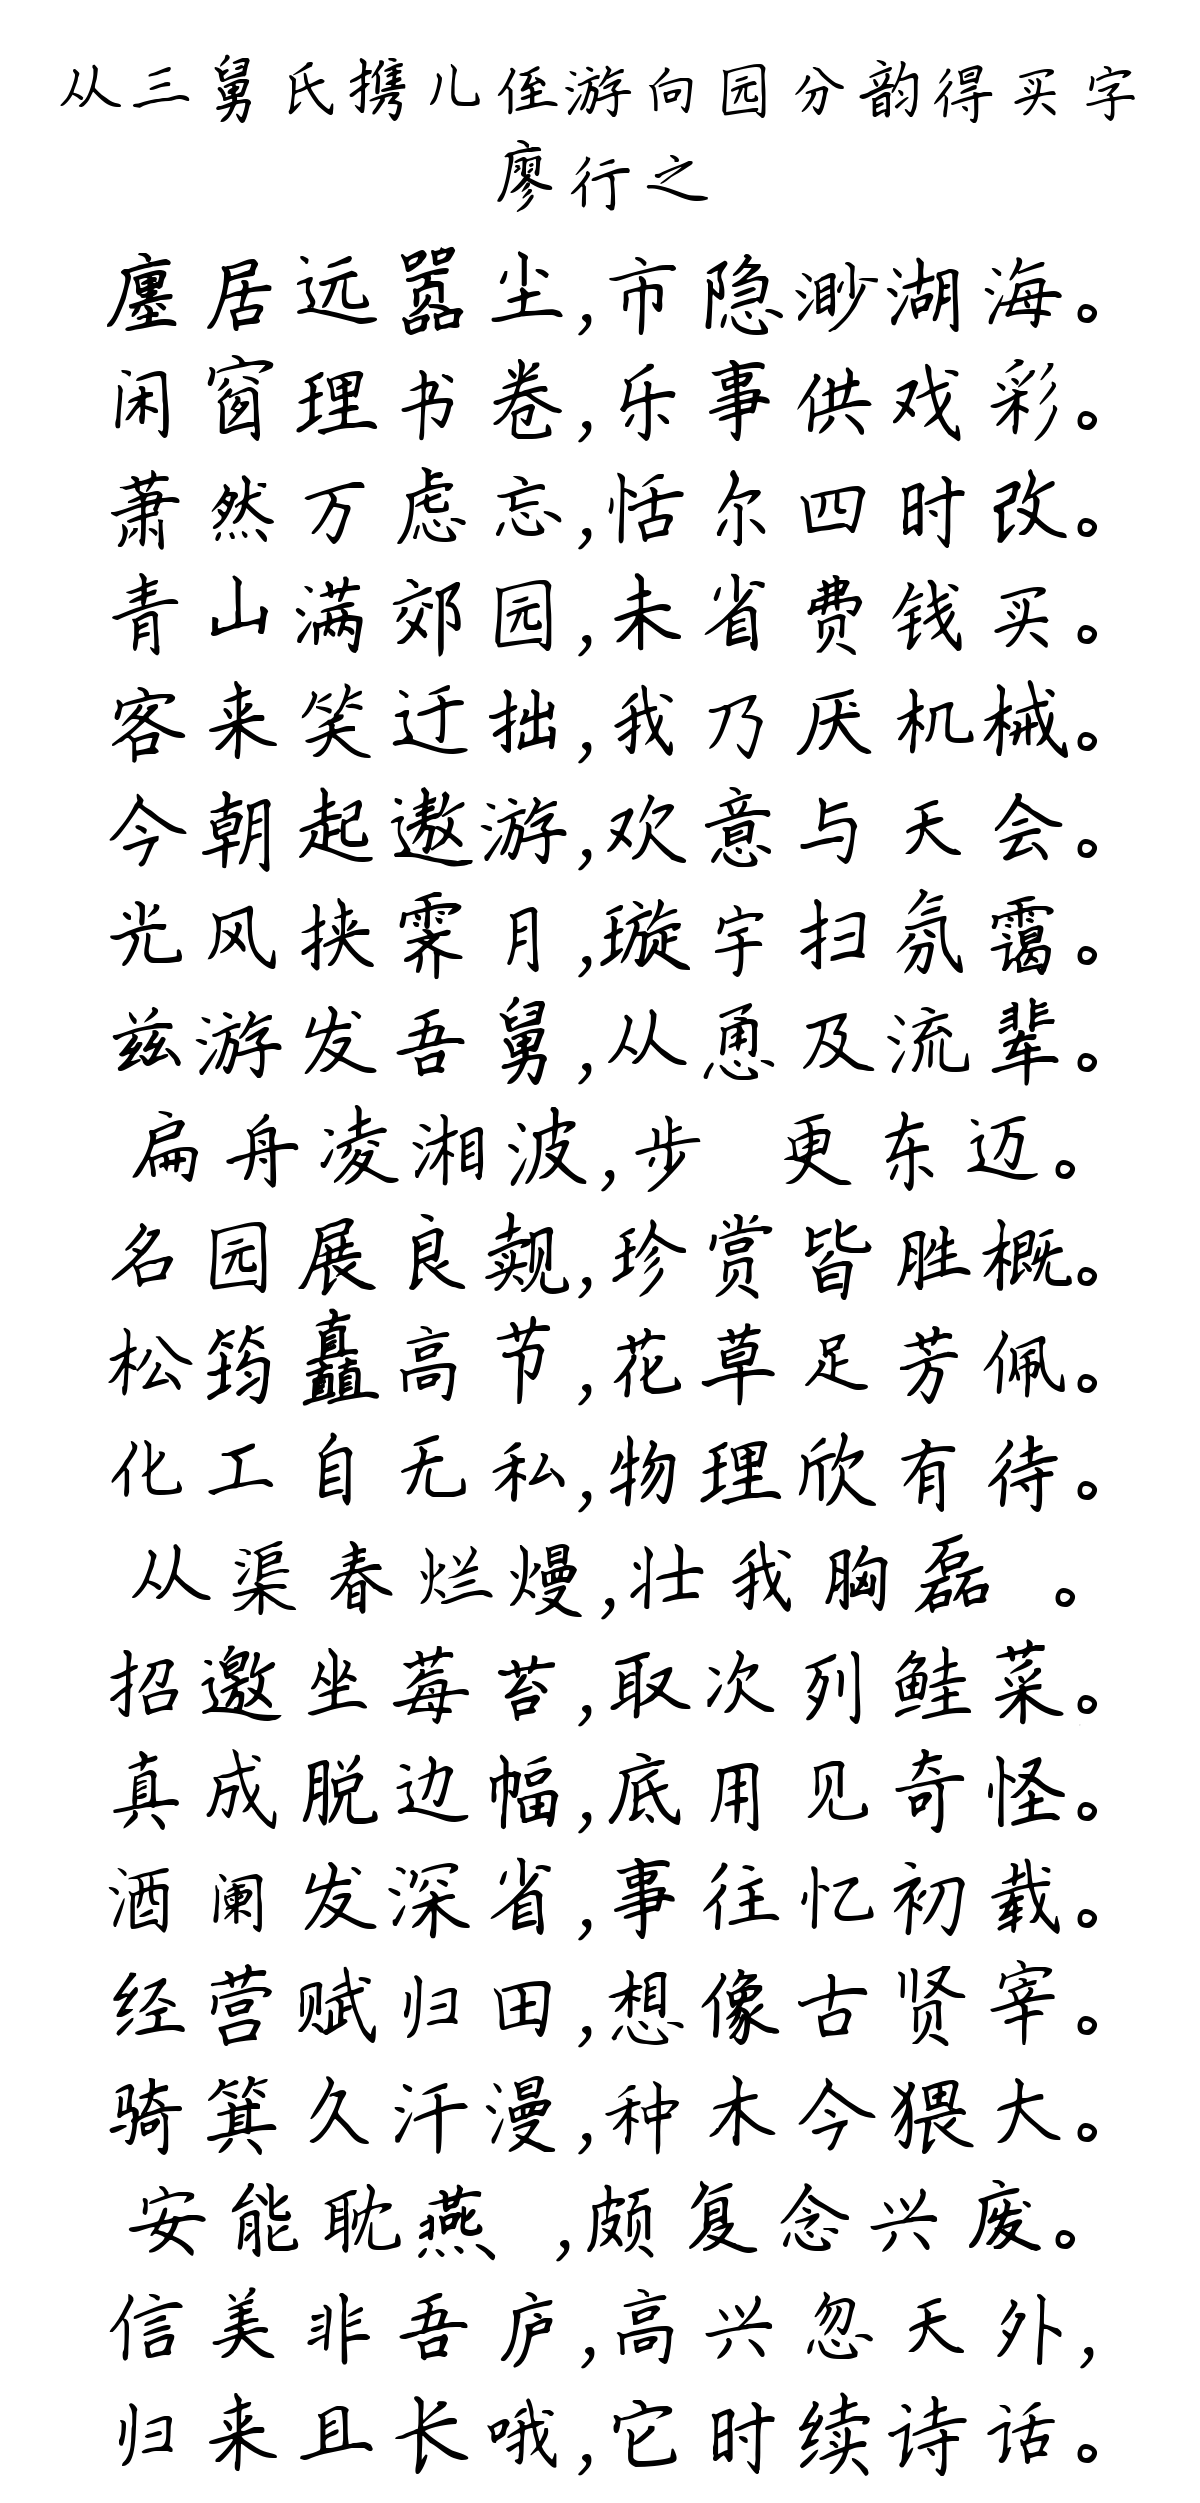 从三舅氏携儿侄游西园分韵得买字
廖行之
廛居远嚣尘,市隐渺湖海。
闲窗理书卷,乐事供戏彩。
萧然万虑忘,恬尔四时改。
青山满郊园,未省费钱买。
客来笑迂拙,我乃厌机械。
今朝起遨游,欢意与天会。
光风挟霁月,琼宇扫氛霭。
兹游发吾舅,从恿及流辈。
扁舟凌湘波,步 更东迈。
名园展良觌,珍赏皆胜概。
松筠矗高节,花草足芳佩。
化工自无私,物理欣有待。
从渠春烂熳,壮我胸磊 。
招邀坐莓苔,取次列鲑菜。
真成脱边幅,底用见奇怪。
酒阑发深省,事往忆初载。
经营赋归田,想像古贤宰。
骑箕久汗漫,种木今猥大。
安能耽燕 ,颇复念兴废。
信美非吾庐,高兴忽天外,
归来且长哦,它时续诗话。